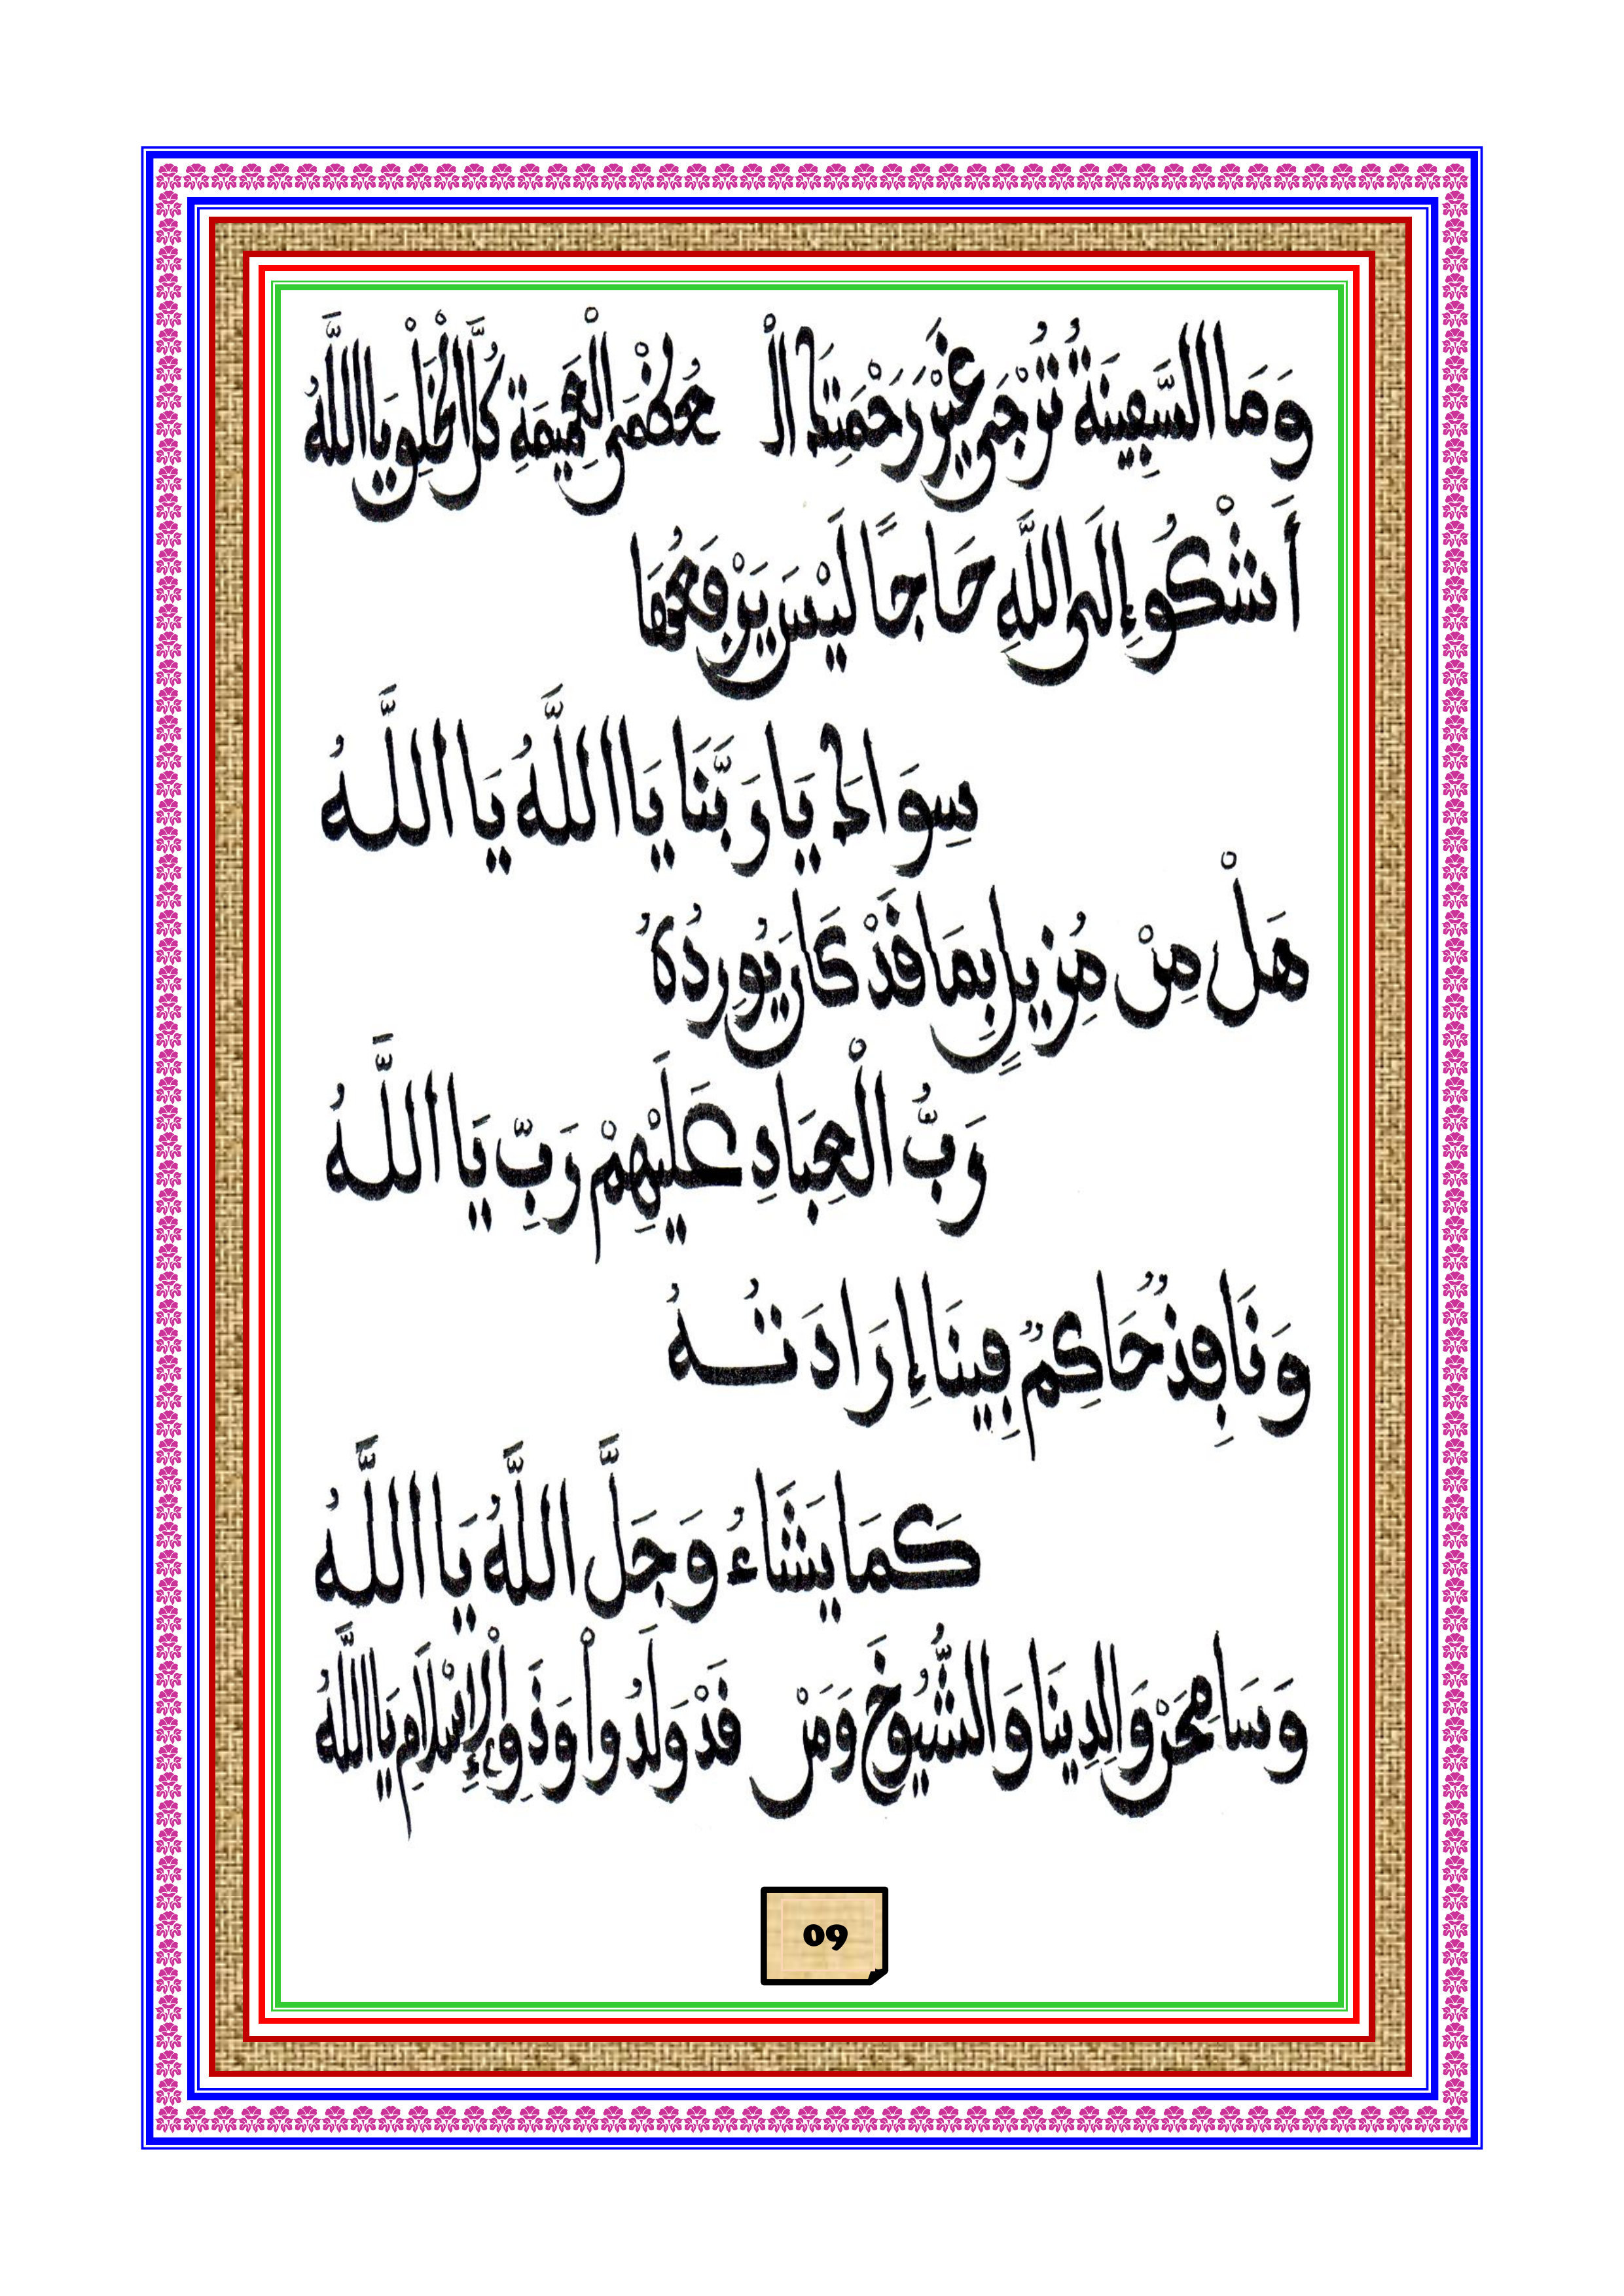 وَمَا السَّفِينَةُ تُرْجَى غَيْرَ رَحْمَتِكَ الْـ عُظْمَى الْعَمِيمَةِ كُلَّ الْخَلْقِ يَا اللَّهُ
أَشْكُو إِلَى اللَّهِ حَاجًا لَيْسَ يَرْفَعُهَا
سِوَاكَ يَا رَبَّنَا يَا اللَّهُ يَا اللَّهُ
هَلْ مِنْ مُزِيلٍ بِمَا قَدْ كَانَ يُورِدُهُ
رَبُّ الْعِبَادِ عَلَيْهِمْ رَبِّ يَا اللَّهُ
وَنَافِذٌ حَاكِمٌ فِينَا إِرَادَتُهُ
كَمَا يَشَاءُ وَجَلَّ اللَّهُ يَا اللَّهُ
وَسَامِحَنْ وَالِدِينَا وَالشُّيُوخَ وَمَنْ قَدْ وَلَدُوا وَذَوِي الْإِسْلَامِ يَا اللَّهُ
09